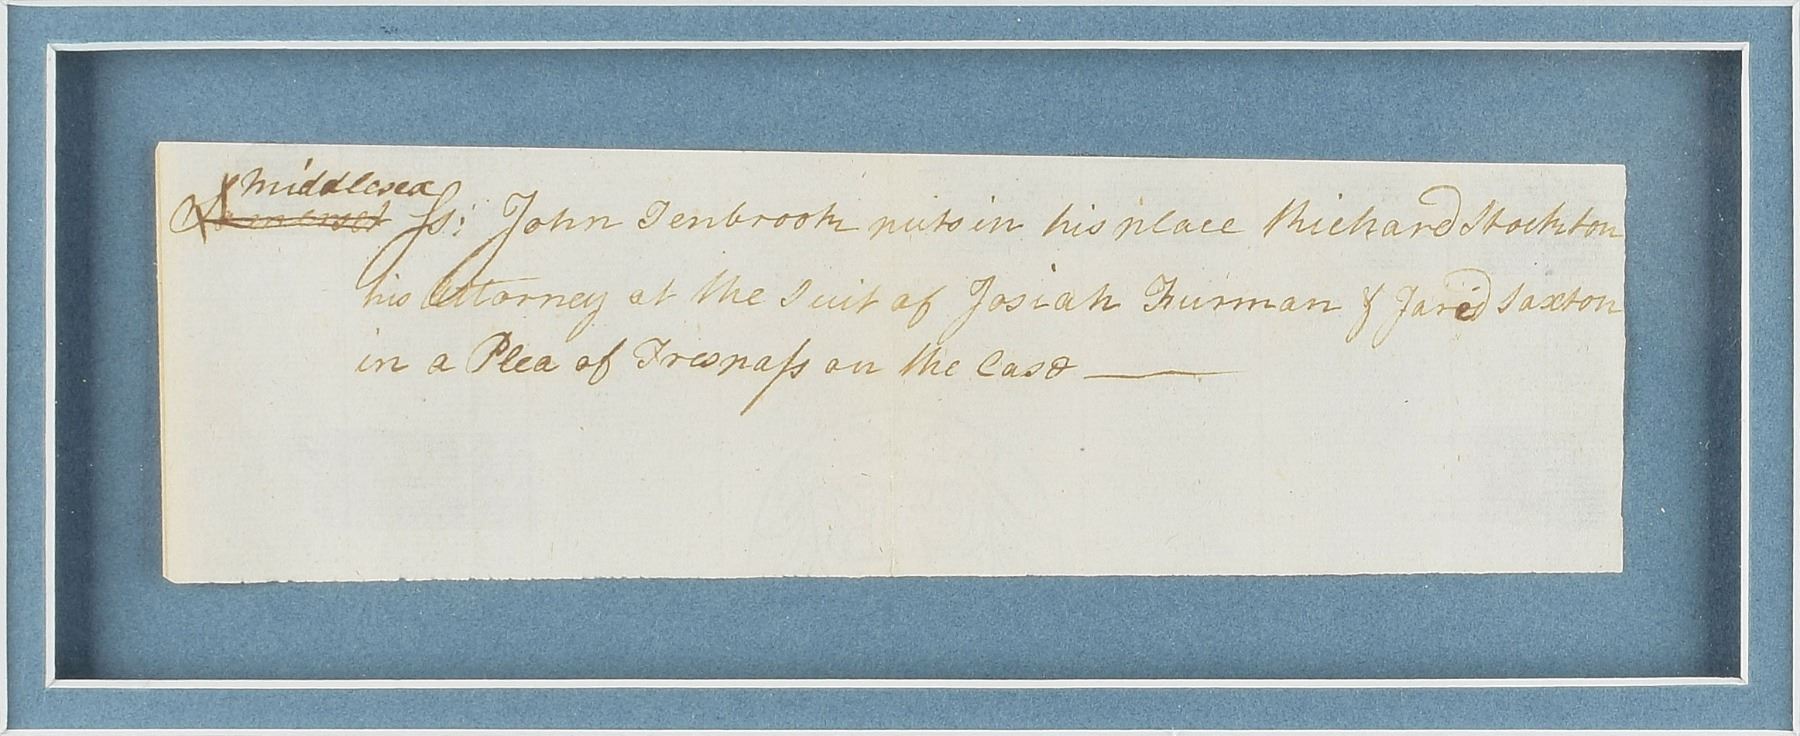 Middlesex
Somerset Ss: John Tenbrook puts in his place Richard Stockton
his Attorney at the Suit of Josiah Furman & Jared Saxton
in a Plea of Trespass on the Case